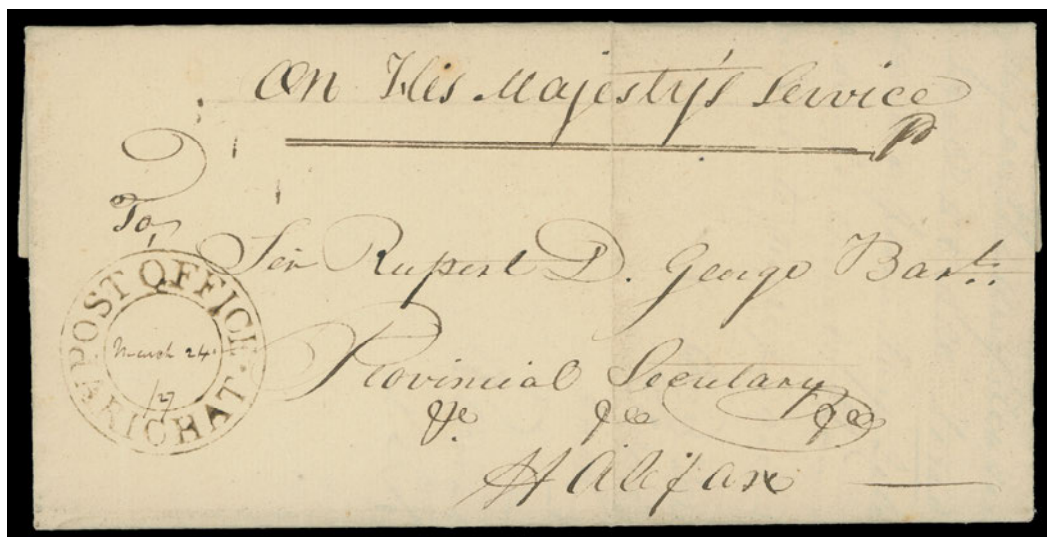 On His Majesty's Service
Pd
To,
Sir Rupert D. George Bart.
Provincial Secretary
&c &c &c
Halifax
POST OFFICE
ARICHAT
March 24